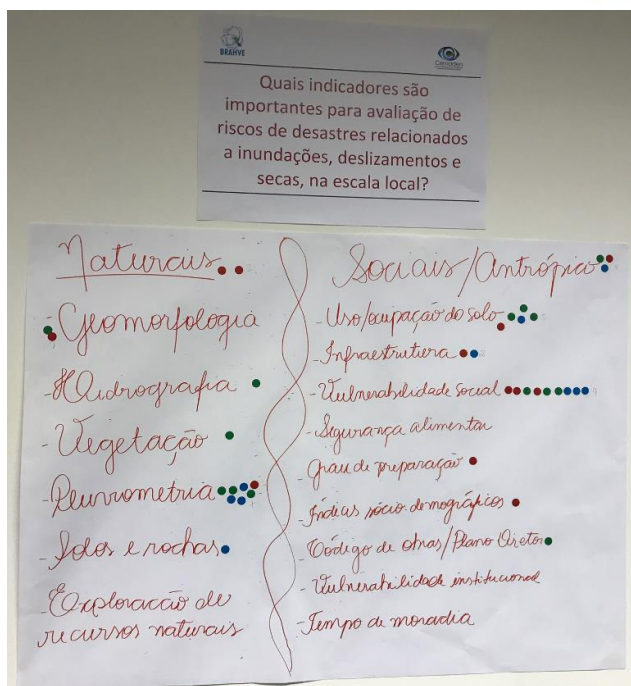 BRAHVE
Cemaden
Quais indicadores são
importantes para avaliação de
riscos de desastres relacionados
a inundações, deslizamentos e
secas, na escala local?
Naturais
- Geomorfologia
- Hidrografia
- Vegetação
- Pluviometria
- Solos e rochas
- Exploração de
recursos naturais
Sociais/Antrópico
- Uso/ocupação do solo
- Infraestrutura
- Vulnerabilidade social
- Segurança alimentar
- Grau de preparação
- Índices sócio demográficos
- Código de obras/Plano Diretor
- Vulnerabilidade institucional
- Tempo de moradia